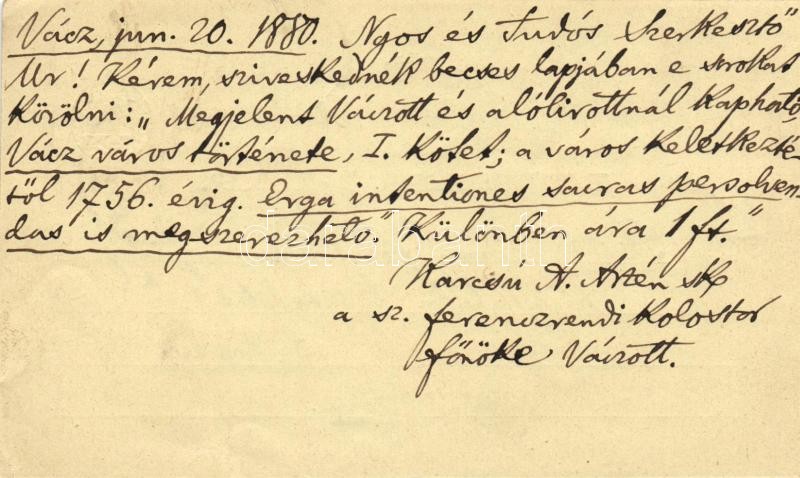 Vácz, jun. 20. 1880. Ngos és Tudós Szerkesztő
Ur! Kérem, sziveskednék becses lapjában e sorokat
közölni: „Megjelent Váczott és alólirottnál kapható
Vácz város története, I. kötet; a város keletkezté-
től 1756. évig. Erga intentiones sacras persolven-
das is megszerezhető." Különben ára 1 ft."
Karcsú A. Arzén sk
a sz. ferenczrendi kolostor
főnöke Váczott.
darabanth